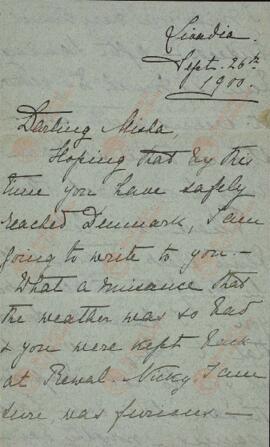 Livadia.
Sept. 26th
1900.
Darling Misha,
Hoping that by this
time you have safely
reached Denmark, I am
going to write to you. —
What a nuisance that
the weather was so bad
& you were kept back
at Reval. Nicky I am
sure was furious —